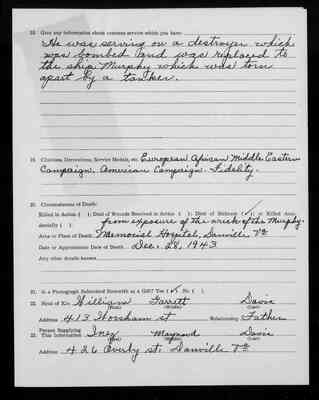 18. Give any information about overseas service which you have:
He was serving on a destroyer which
was bombed and was replaced to
the ship Murphy which was torn
apart by a tanker.
19. Citations, Decorations, Service Medals, etc. European African Middle Eastern
Campaign. American Campaign - Fidelity.
20. Circumstances of Death:
Killed in Action ( ); Died of Wounds Received in Action ( ); Died of Sickness (✓); or Killed Accidentally ( ):
from exposure of the wreck of the Murphy.
Area or Place of Death: Memorial Hospital, Danville Va
Date or Approximate Date of Death: Dec. 28, 1943
Any other details known
21. Is a Photograph Submitted Herewith as a Gift? Yes (✓) No ( ).
22. Next of Kin William Garett Davis
(First) (Middle) (Last)
Address 413 Horsham st Relationship Father
Person Supplying
23. This Information Inez Maynard Davis
(First) (Middle) (Last)
Address 426 Overby st. Danville Va